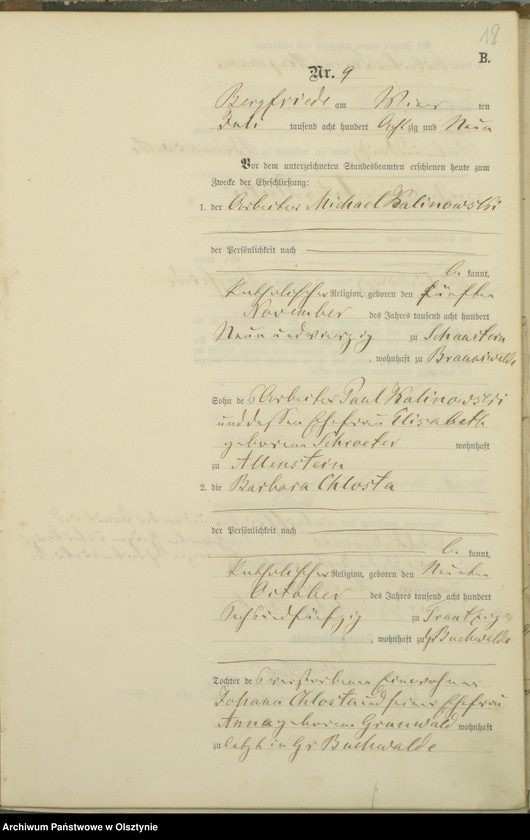 18
B.
Nr. 9
Bergfriede am ten
Juli tausend acht hundert Achtzig und Neun
Vor dem unterzeichneten Standesbeamten erschienen heute zum
Zwecke der Eheschließung:
1. der Arbeiter Michael Kalinowski
der Persönlichkeit nach
be kannt,
katholischer Religion, geboren den fünften
November des Jahres tausend acht hundert
Neun und vierzig zu
, wohnhaft zu Braunswalde
Sohn des Arbeiter Paul Kalinowski
und dessen Ehefrau Elisabeth
geborene Schroeter wohnhaft
zu Allenstein
2. die Barbara Chlosta
der Persönlichkeit nach
be kannt,
katholischer Religion, geboren den
October des Jahres tausend acht hundert
Sechs und fünfzig zu Trautzig
, wohnhaft zu Gr Buchwalde
Tochter des verstorbenen Einwohner
Johann Chlosta und seiner Ehefrau
Anna geborene Grunwald wohnhaft
zuletzt in Gr Buchwalde
Archiwum Państwowe w Olsztynie